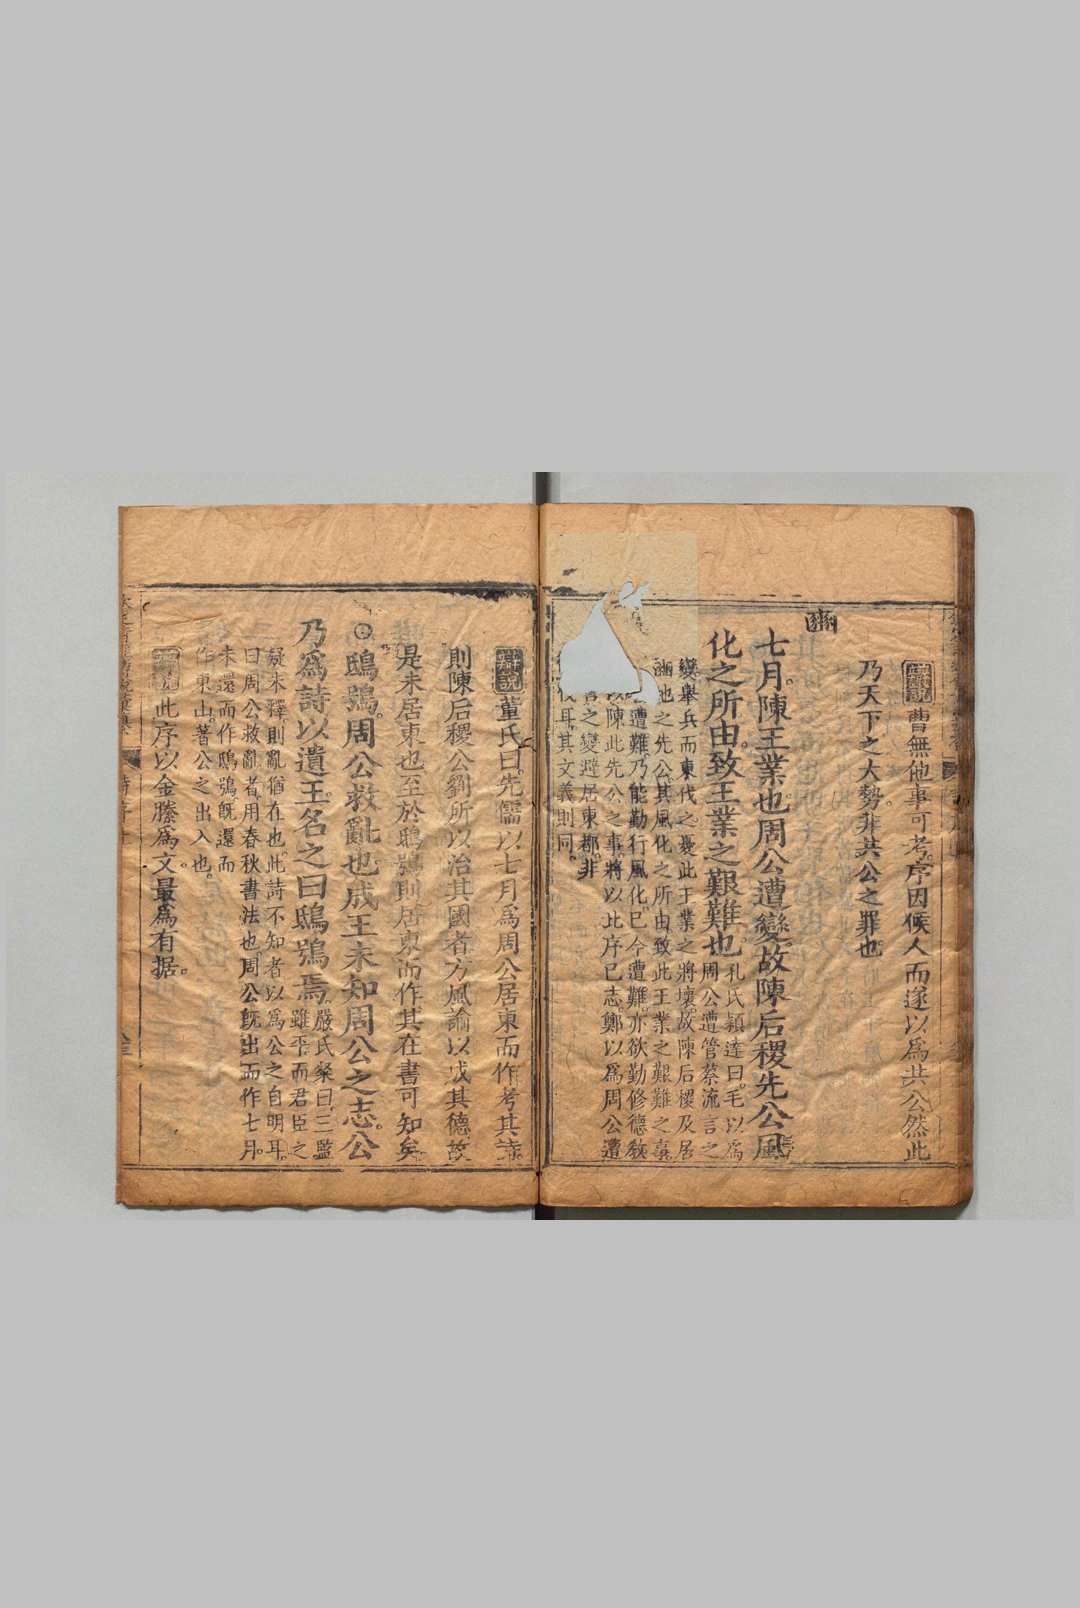 辯說曹無他事可考序因候人而遂以爲共公然此
乃天下之大勢非共公之罪也
豳
七月陳王業也周公遭變故陳后稷先公風
化之所由致王業之艱難也
孔氏穎達曰毛以爲
周公遭管蔡流言之
變舉兵而東伐之憂此王業之將壞故陳后稷及居
豳地之先公其風化之所由致此王業之艱難之事
遭難乃能勤行風化已今遭難亦欲勤修德教
陳此先公之事將以比序已志鄭以爲周公遭
言之變避居東都非
伐耳其文義則同
辯說董氏曰先儒以七月爲周公居東而作考其詩
則陳后稷公劉所以治其國者方風諭以成其德故
是未居東也至於鴟鴞則居東而作其在書可知矣
○鴟鴞周公救亂也成王未知周公之志公
乃爲詩以遺王名之曰鴟鴞焉
嚴氏粲曰三監
雖平而君臣之
疑未釋則亂猶在也此詩不知者以爲公之自明耳
曰周公救亂者用春秋書法也周公旣出而作七月
未還而作鴟鴞旣還而
作東山著公之出入也
辯說此序以金縢爲文最爲有據